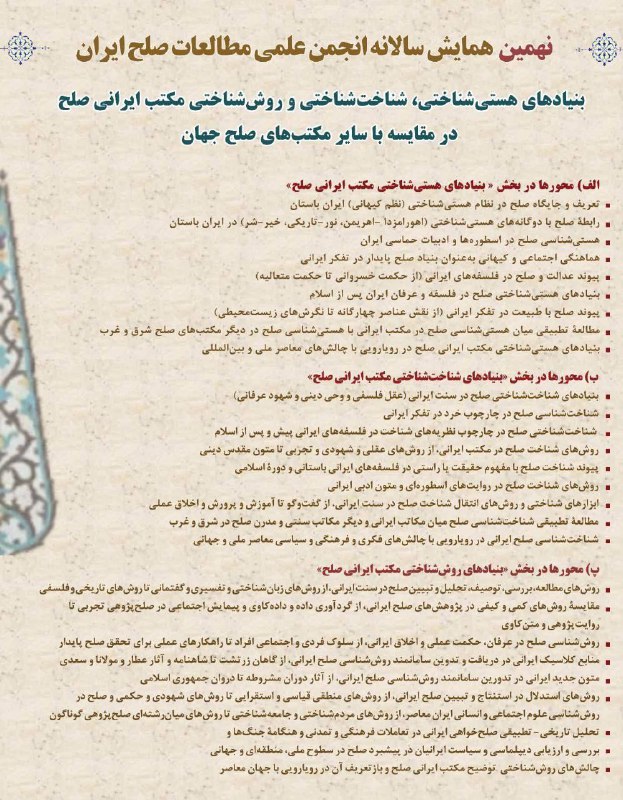 نهمین همایش سالانه انجمن علمی مطالعات صلح ایران
بنیادهای هستی‌شناختی، شناخت‌شناختی و روش‌شناختی مکتب ایرانی صلح
در مقایسه با سایر مکتب‌های صلح جهان
الف) محورها در بخش « بنیادهای هستی‌شناختی مکتب ایرانی صلح»
تعریف و جایگاه صلح در نظام هستی‌شناختی (نظم کیهانی) ایران باستان
رابطهٔ صلح با دوگانه‌های هستی‌شناختی (اهورامزدا -اهریمن، نور-تاریکی، خیر-شر) در ایران باستان
هستی‌شناسی صلح در اسطوره‌ها و ادبیات حماسی ایران
هماهنگی اجتماعی و کیهانی به‌عنوان بنیاد صلح پایدار در تفکر ایرانی
پیوند عدالت و صلح در فلسفه‌های ایرانی (از حکمت خسروانی تا حکمت متعالیه)
بنیادهای هستی‌شناختی صلح در فلسفه و عرفان ایران پس از اسلام
پیوند صلح با طبیعت در تفکر ایرانی (از نقش عناصر چهارگانه تا نگرش‌های زیست‌محیطی)
مطالعهٔ تطبیقی میان هستی‌شناسی صلح در مکتب ایرانی با هستی‌شناسی صلح در دیگر مکتب‌های صلح شرق و غرب
بنیادهای هستی‌شناختی مکتب ایرانی صلح در رویارویی با چالش‌های معاصر ملی و بین‌المللی
ب) محورها در بخش «بنیادهای شناخت‌شناختی مکتب ایرانی صلح»
بنیادهای شناخت‌شناختی صلح در سنت ایرانی (عقل فلسفی و وحی دینی و شهود عرفانی)
شناخت‌شناسی صلح در چارچوب خرد در تفکر ایرانی
شناخت‌شناختی صلح در چارچوب نظریه‌های شناخت در فلسفه‌های ایرانی پیش و پس از اسلام
روش‌های شناخت صلح در مکتب ایرانی، از روش‌های عقلی و شهودی و تجربی تا متون مقدس دینی
پیوند شناخت صلح با مفهوم حقیقت یا راستی در فلسفه‌های ایرانی باستانی و دورهٔ اسلامی
روش‌های شناخت صلح در روایت‌های اسطوره‌ای و متون ادبی ایرانی
ابزارهای شناختی و روش‌های انتقال شناخت صلح در سنت ایرانی، از گفت‌وگو تا آموزش و پرورش و اخلاق عملی
مطالعهٔ تطبیقی شناخت‌شناسی صلح میان مکاتب ایرانی و دیگر مکاتب سنتی و مدرن صلح در شرق و غرب
شناخت‌شناسی صلح ایرانی در رویارویی با چالش‌های فکری و فرهنگی و سیاسی معاصر ملی و جهانی
پ) محورها در بخش «بنیادهای روش‌شناختی مکتب ایرانی صلح»
روش‌های مطالعه، بررسی، توصیف، تحلیل و تبیین صلح در سنت ایرانی، از روش‌های زبان‌شناختی و تفسیری و گفتمانی تا روش‌های تاریخی و فلسفی
مقایسهٔ روش‌های کمی و کیفی در پژوهش‌های صلح ایرانی، از گردآوری داده و داده‌کاوی و پیمایش اجتماعی در صلح‌پژوهی تجربی تا
روایت‌پژوهی و متن‌کاوی
روش‌شناسی صلح در عرفان، حکمت عملی و اخلاق ایرانی، از سلوک فردی و اجتماعی افراد تا راهکارهای عملی برای تحقق صلح پایدار
منابع کلاسیک ایرانی در دریافت و تدوین سامانمند روش‌شناسی صلح ایرانی، از گاهان زرتشت تا شاهنامه و آثار عطار و مولانا و سعدی
متون جدید ایرانی در تدورین سامانمند روش‌شناسی صلح ایرانی، از آثار دوران مشروطه تا دروان جمهوری اسلامی
روش‌های استدلال در استنتاج و تبیین صلح ایرانی، از روش‌های منطقی قیاسی و استقرایی تا روش‌های شهودی و حکمی و صلح در
روش‌شناسی علوم اجتماعی و انسانی ایران معاصر، از روش‌های مردم‌شناختی و جامعه‌شناختی تا روش‌های میان‌رشته‌ای صلح‌پژوهی گوناگون
تحلیل تاریخی- تطبیقی صلح‌خواهی ایرانی در تعاملات فرهنگی و تمدنی و هنگامهٔ جنگ‌ها و
بررسی و ارزیابی دیپلماسی و سیاست ایرانیان در پیشبرد صلح در سطوح ملی، منطقه‌ای و جهانی
چالش‌های روش‌شناختی توضیح مکتب ایرانی صلح و بازتعریف آن در رویارویی با جهان معاصر